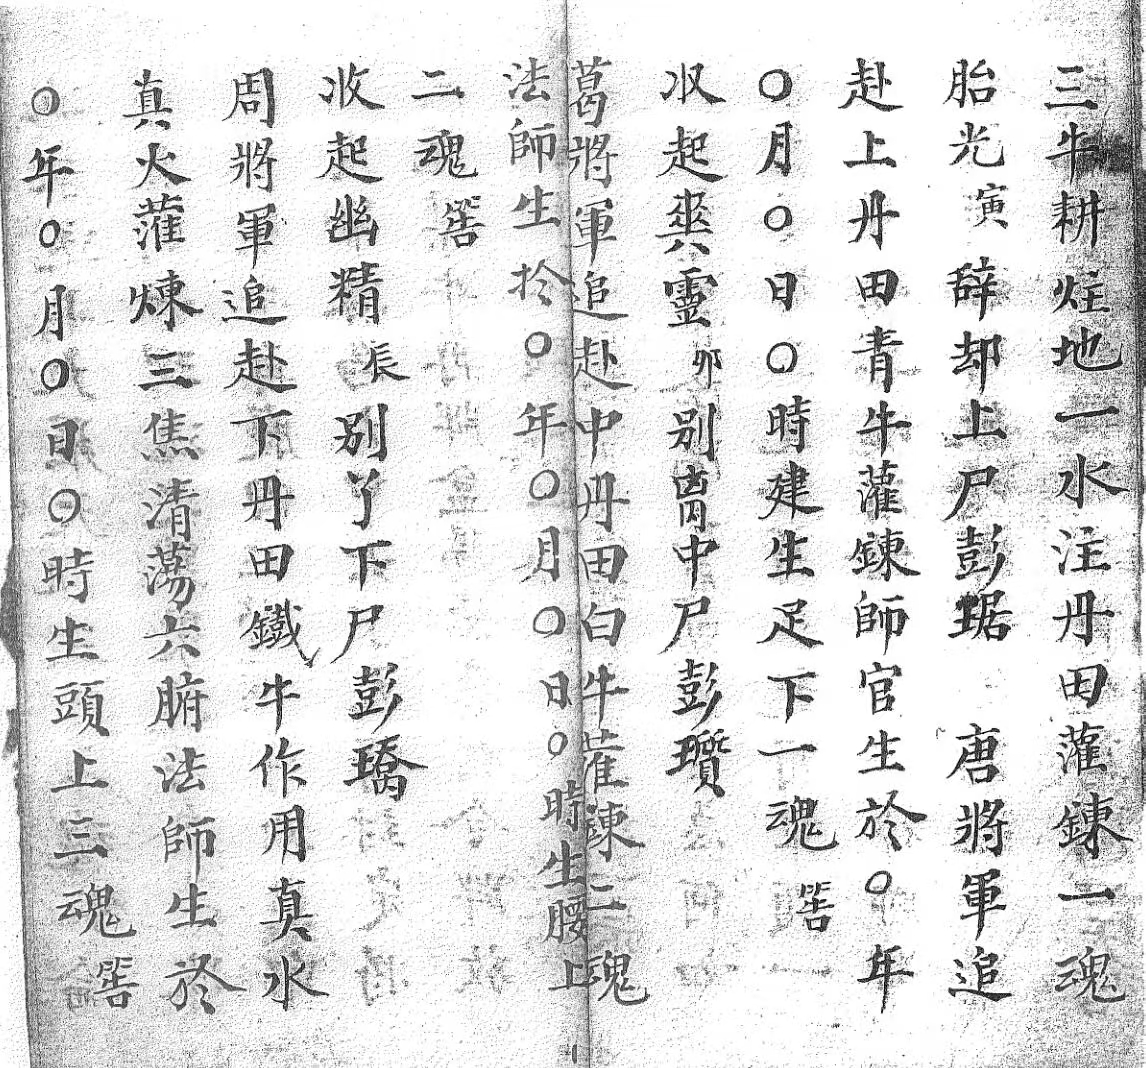 三牛耕炷地一水注丹田灌鍊一魂
胎光寅辞却上尸彭琚　唐將軍追
赴上丹田青牛灌鍊師官生於〇年
〇月〇日〇時建生足下一魂筶
収起爽靈卯别胷中尸彭瓚
葛將軍追赴中丹田白牛灌鍊二魂
法師生扵〇年〇月〇日〇時生腰上
二魂筶
收起幽精辰别丫下尸彭璚
周將軍追赴下丹田鐵牛作用真水
真火灌煉三焦清蕩六腑法師生於
〇年〇月〇日〇時生頭上三魂筶